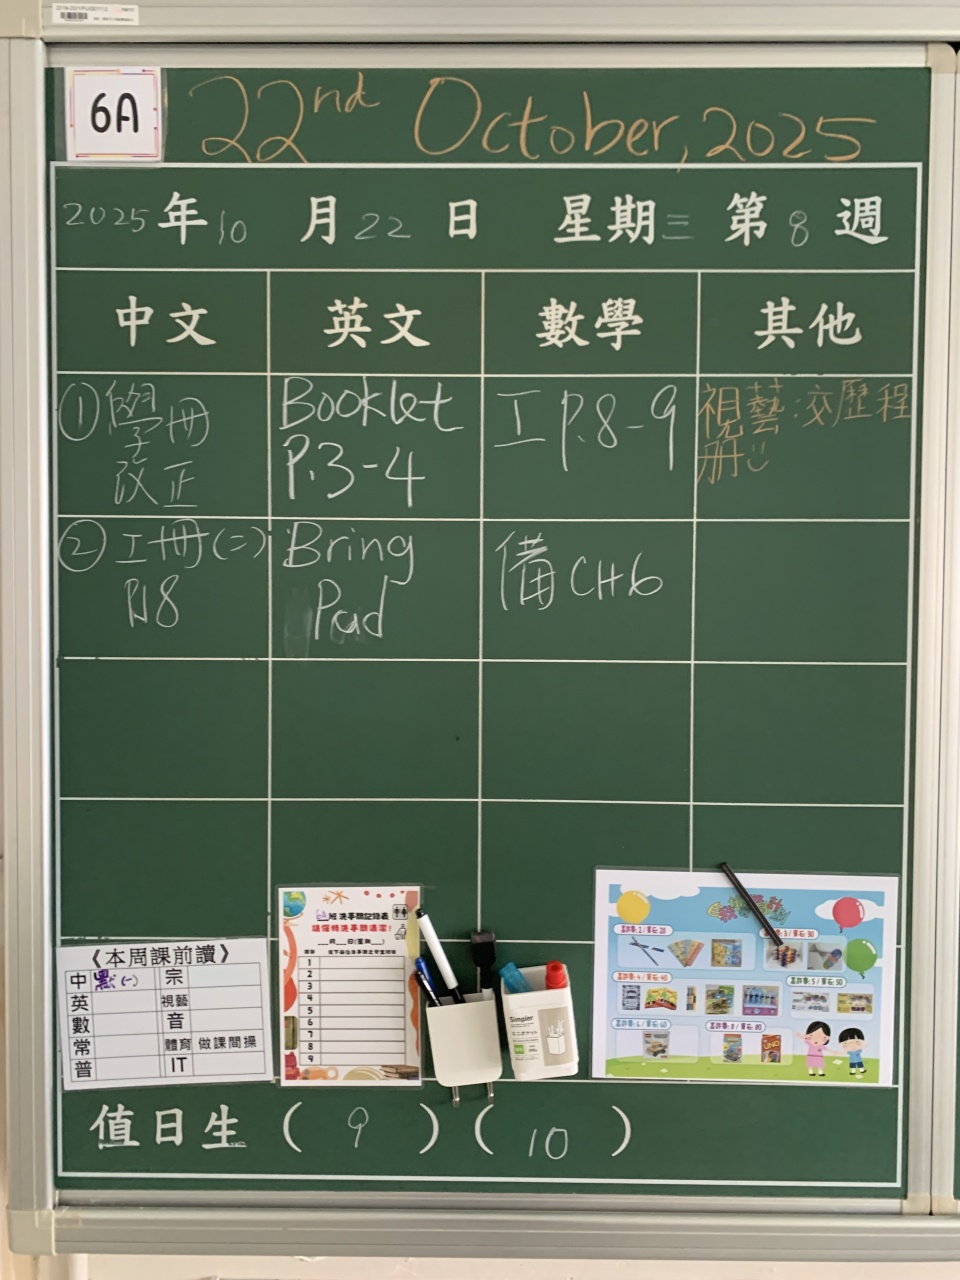 6A
22nd October, 2025
2025年10月22日 星期三 第8週
中文 英文 數學 其他
①學冊
改正
Booklet
P.3-4
工 P.8-9
視藝:交歷程
册
②工冊(二)
P.18
Bring
Pad
備 CH6
《本周課前讀》
中 默(一) 宗
英 視藝
數 音
常 體育 做課間操
普 IT
6A班洗手間記錄表
請保持洗手間清潔!
___月___日(星期___)
1
2
3
4
5
6
7
8
9
Simpler
UNO
值日生 (9) (10)